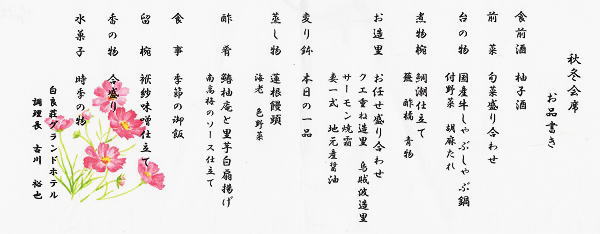 秋冬会席
お品書き
食前酒 柚子酒
前菜 旬菜盛り合わせ
台の物 国産牛しゃぶしゃぶ鍋
付野菜 胡麻たれ
煮物椀 鯛潮仕立て
蕪 酢橘 青物
お造里 お任せ盛り合わせ
クエ重ね造里 烏賊波造里
サーモン焼霜
妻一式 地元産醤油
炙り鉢 本日の一品
蒸し物 蓮根饅頭
海老 色野菜
酢肴 鰆柚庵と里芋白扇揚げ
南高梅のソース仕立て
食事 季節の御飯
留椀 袱紗味噌仕立て
香の物 合盛り
水菓子 時季の物
白良荘グランドホテル
調理長 古川 裕也